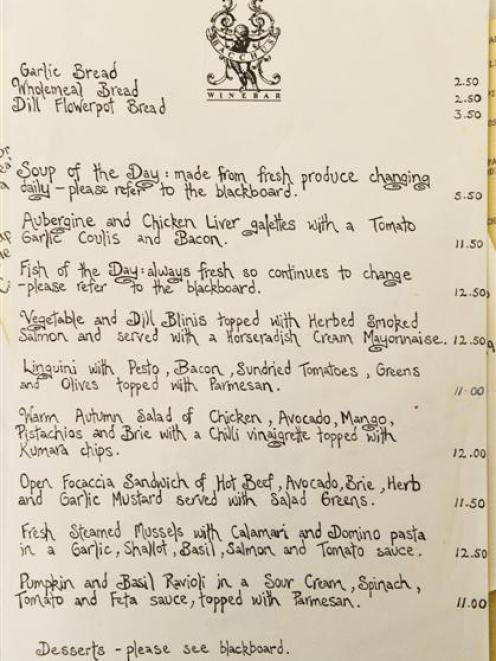 BACCHUS
WINEBAR
Garlic Bread 2.50
Wholemeal Bread 2.50
Dill Flowerpot Bread 3.50
Soup of the Day : made from fresh produce changing
daily - please refer to the blackboard. 5.50
Aubergine and Chicken Liver galettes with a Tomato
Garlic Coulis and Bacon. 11.50
Fish of the Day: always fresh so continues to change
- please refer to the blackboard. 12.50
Vegetable and Dill Blinis topped with Herbed Smoked
Salmon and served with a Horseradish Cream Mayonnaise. 12.50
Linguini with Pesto, Bacon, Sundried Tomatoes, Greens
and Olives topped with Parmesan. 11.00
Warm Autumn Salad of Chicken, Avocado, Mango,
Pistachios and Brie with a Chilli vinaigrette topped with
Kumara chips. 12.00
Open Focaccia Sandwich of Hot Beef, Avocado, Brie, Herb
and Garlic Mustard served with Salad Greens. 11.50
Fresh Steamed Mussels with Calamari and Domino pasta
in a Garlic, Shallot, Basil, Salmon and Tomato sauce. 12.50
Pumpkin and Basil Ravioli in a Sour Cream, Spinach,
Tomato and Feta sauce, topped with Parmesan. 11.00
Desserts - please see blackboard.